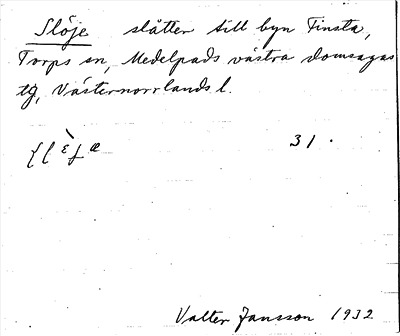 Slöje slåtter till byn Finsta,
Torps sn, Medelpads västra domsagas
tg, Västernorrlands l.
31.
Valter Jansson 1932